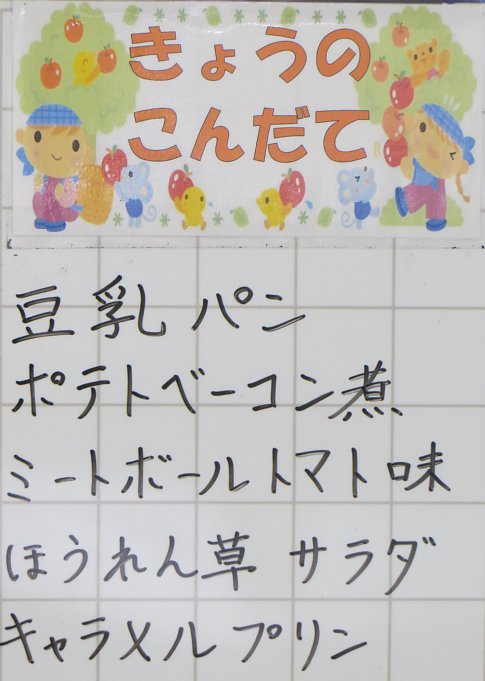 きょうの
こんだて
豆乳パン
ポテトベーコン煮
ミートボールトマト味
ほうれん草 サラダ
キャラメルプリン